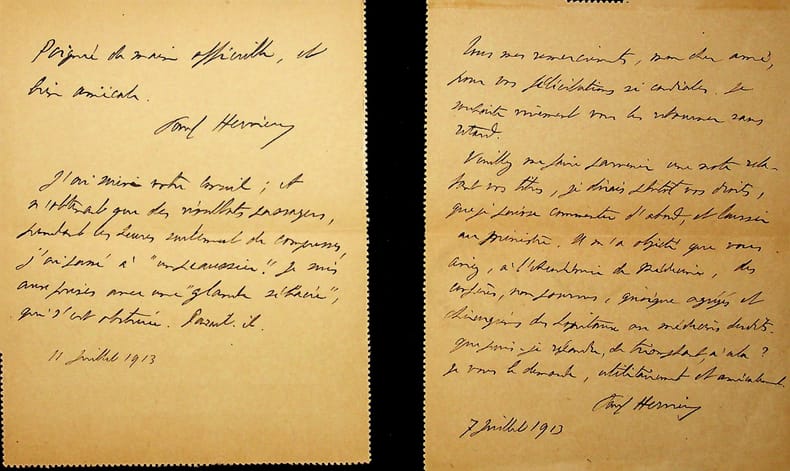 Poignée de main officielle, et
bien amicale.
Paul Hervieu
J'ai suivi votre conseil ; et
n'obtenant que des résultats passagers,
pendant les heures seulement de compresses,
j'ai passé à "un peaussier". Je suis
aux prises avec une "glande sébacée",
qui s'est obstruée. Paraît-il.
11 Juillet 1913
Tous mes remerciements, mon cher ami,
pour vos félicitations si cordiales. Je
souhaite vivement vous les retourner sans
retard.
Veuillez me faire parvenir une note rela-
tant vos titres, je dirais plutôt vos droits,
que je puisse commenter d'abord, et laisser
au ministre. Il m'a objecté que vous
aviez, à l'Académie de Médecine, des
confrères, non pourvus, quoique agrégés et
chirurgiens des hôpitaux ou médecins desdits.
que puis-je répondre, de triomphant, à cela ?
Je vous le demande, utilitairement et amicalement
Paul Hervieu
7 Juillet 1913